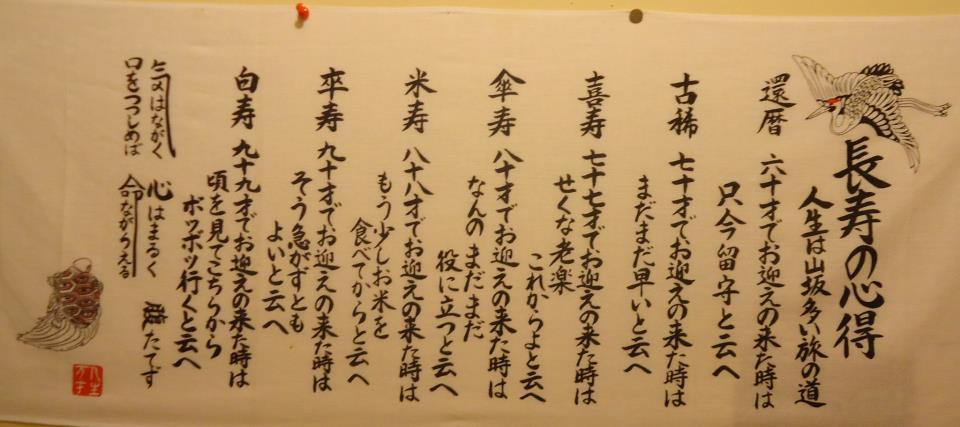 長寿の心得
人生は山坂多い旅の道
還暦 六十才でお迎えの来た時は
只今留守と云へ
古稀 七十才でお迎えの来た時は
まだまだ早いと云へ
喜寿 七十七才でお迎えの来た時は
せくな老楽
これからよと云へ
傘寿 八十才でお迎えの来た時は
なんのまだまだ
役に立つと云へ
米寿 八十八才でお迎えの来た時は
もう少しお米を
食べてからと云へ
卒寿 九十才でお迎えの来た時は
そう急がずとも
よいと云へ
白寿 九十九才でお迎えの来た時は
頃を見てこちらから
ボツボツ行くと云へ
気はながく 心はまるく 腹たてず
口をつつしめば 命ながらえる